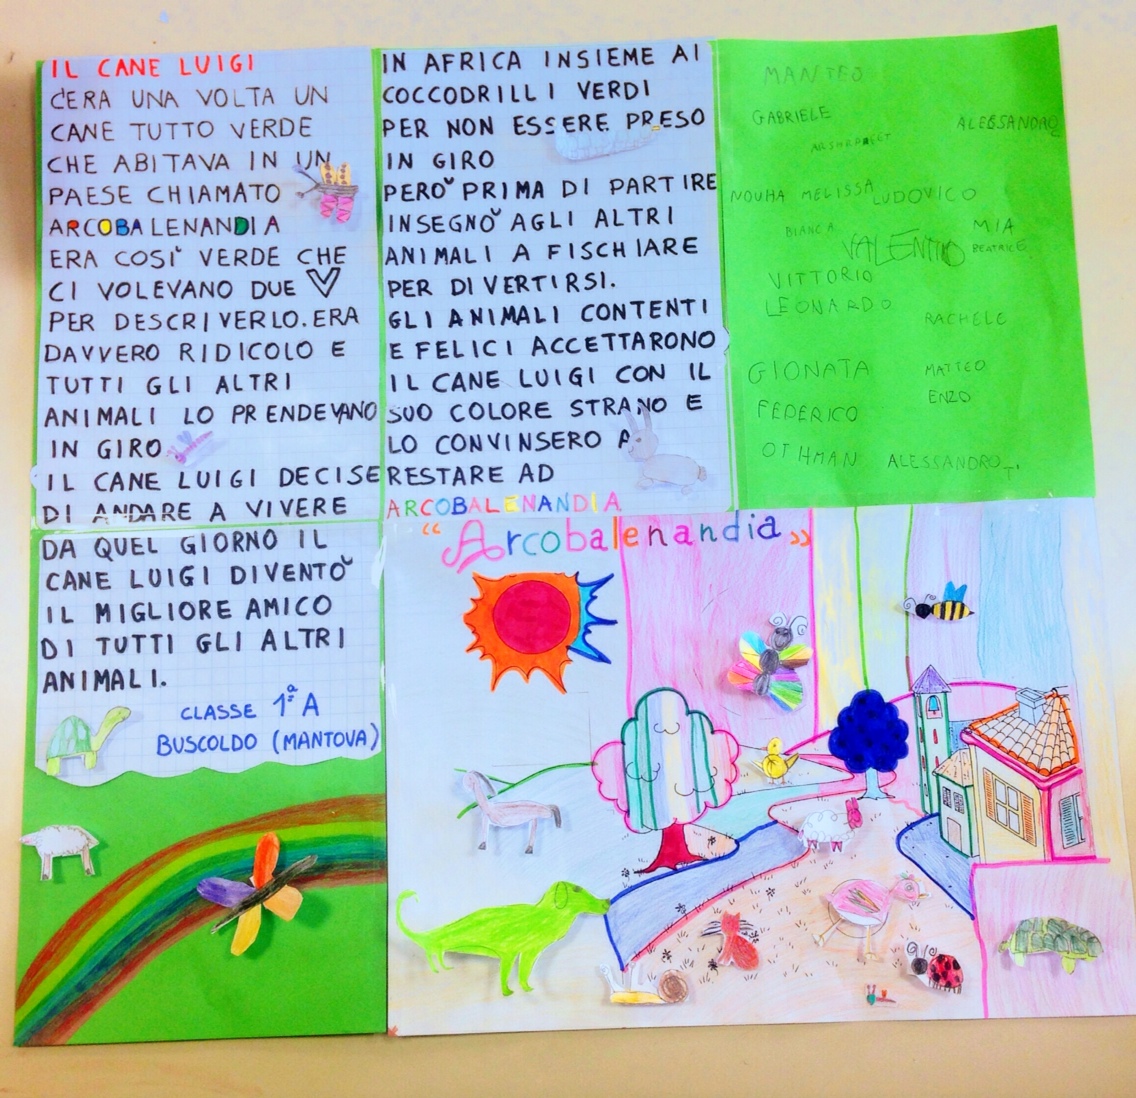 IL CANE LUIGI
C'ERA UNA VOLTA UN
CANE TUTTO VERDE
CHE ABITAVA IN UN
PAESE CHIAMATO
ARCOBALENANDIA
ERA COSÌ VERDE CHE
CI VOLEVANO DUE V
PER DESCRIVERLO. ERA
DAVVERO RIDICOLO E
TUTTI GLI ALTRI
ANIMALI LO PRENDEVANO
IN GIRO
IL CANE LUIGI DECISE
DI ANDARE A VIVERE
IN AFRICA INSIEME AI
COCCODRILLI VERDI
PER NON ESSERE PRESO
IN GIRO
PERÒ PRIMA DI PARTIRE
INSEGNÒ AGLI ALTRI
ANIMALI A FISCHIARE
PER DIVERTIRSI.
GLI ANIMALI CONTENTI
E FELICI ACCETTARONO
IL CANE LUIGI CON IL
SUO COLORE STRANO E
LO CONVINSERO A
RESTARE AD
ARCOBALENANDIA
DA QUEL GIORNO IL
CANE LUIGI DIVENTÒ
IL MIGLIORE AMICO
DI TUTTI GLI ALTRI
ANIMALI.
CLASSE 1ª A
BUSCOLDO (MANTOVA)
MANTEO
GABRIELE
ALESSANDRO
ARSHRPREET
NOUHA MELISSA LUDOVICO
BIANCA
MIA
VALENTINO
BEATRICE
VITTORIO
LEONARDO
RACHELE
GIONATA
MATTEO
ENZO
FEDERICO
OTHMAN
ALESSANDRO T.
"Arcobalenandia"